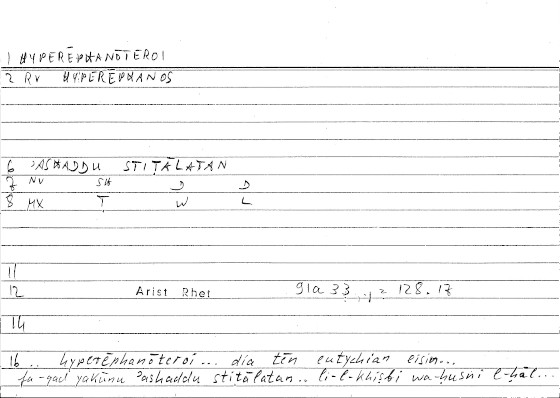 1 HYPERĒPHANŌTEROI
2 RV HYPERĒPHANOS
6 ʾASHADDU STIṬĀLATAN
7 NV SH D D
8 MX Ṭ W L
11
12 Arist Rhet 91a 33 = 128.17
14
16 .. hyperēphanōteroi... dia tēn eutychian eisin...
fa-qad yakūnu ʾashaddu stiṭālatan.. li-l-khiṣbi wa-ḥusni l-ḥāl...